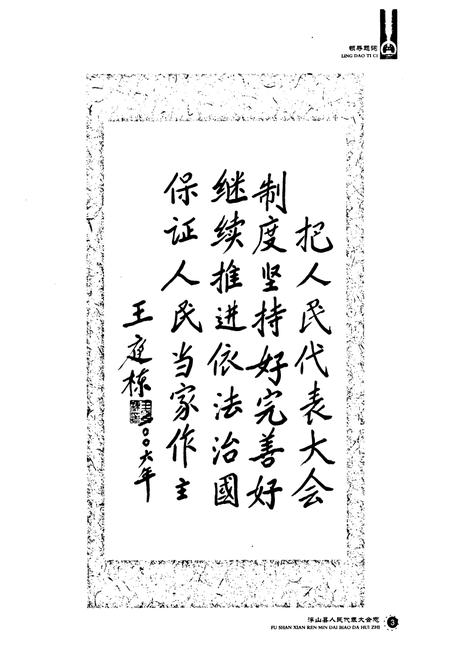 领导题词
LING DAO TI CI
把人民代表大会
制度坚持好完善好
继续推进依法治國
保证人民当家作主
王庭栋
二〇〇六年
浮山县人民代表大会志
FU SHAN XIAN REN MIN DAI BIAO DA HUI ZHI
3